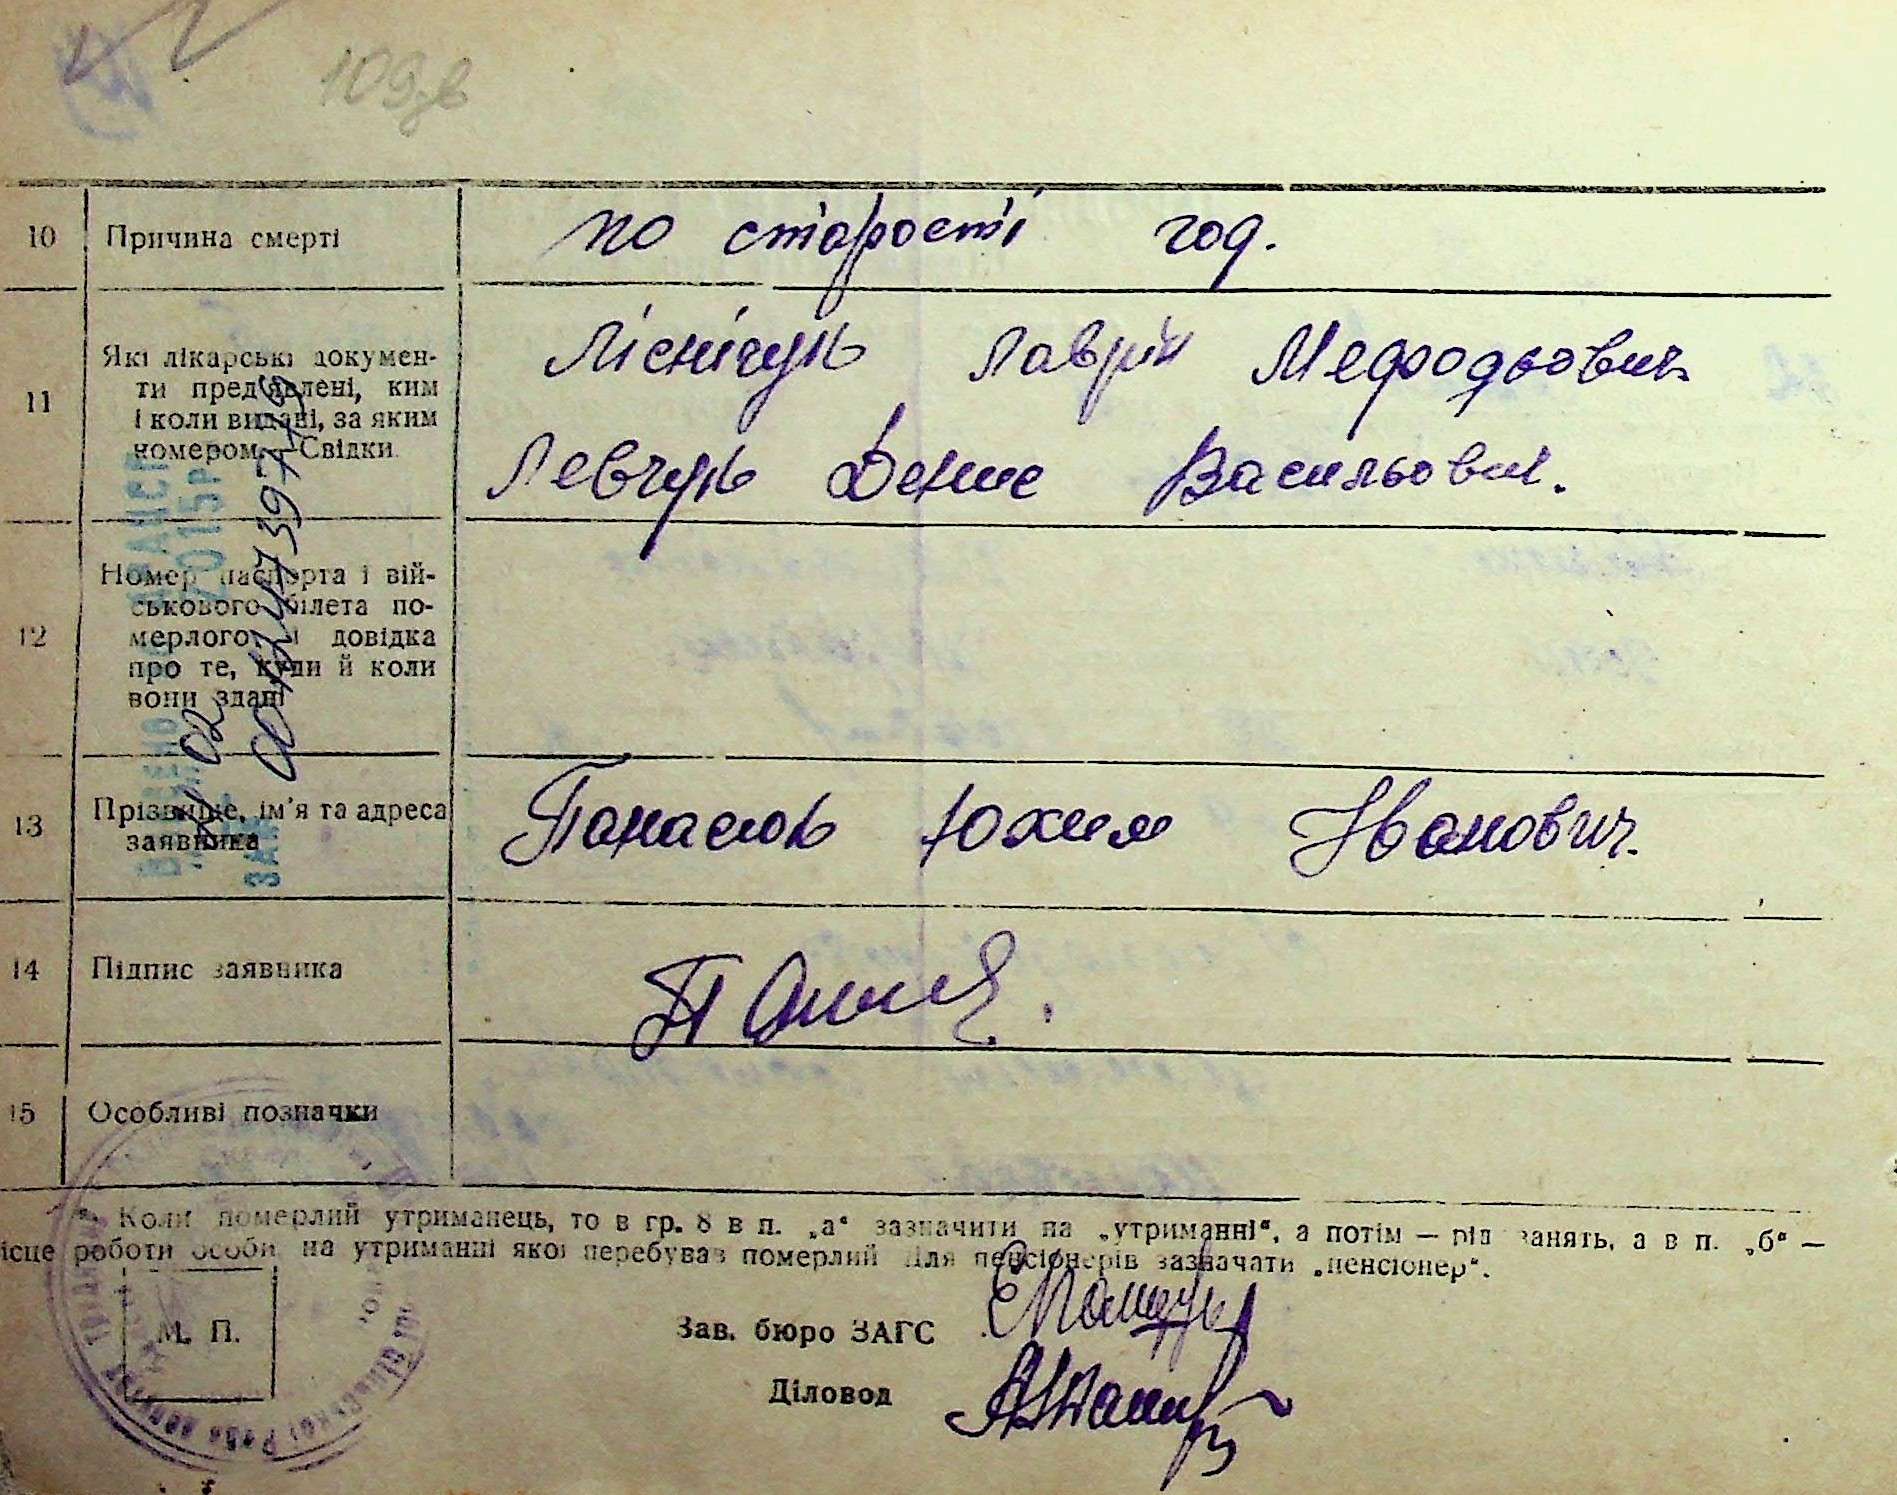 109 зв
10 Причина смерті по старості год.
11 Які лікарські докумен-
ти пред'явлені, ким
і коли видані, за яким
номером. Свідки
Ліснічук Лаврін Мефодьович
Левчук Денис Васильович.
12 Номер паспорта і вій-
ськового білета по-
мерлого і довідка
про те, куди й коли
вони здані
13 Прізвище, ім'я та адреса
заявника
Панасюк Юхим Іванович.
14 Підпис заявника
15 Особливі позначки
Коли померлий утриманець, то в гр. 8 в п. „а“ зазначити на „утриманні“, а потім — рід занять, а в п. „б“ —
місце роботи особи на утриманні якої перебував померлий Для пенсіонерів зазначати „пенсіонер“.
М. П.
Зав. бюро ЗАГС
Діловод
2015р
02